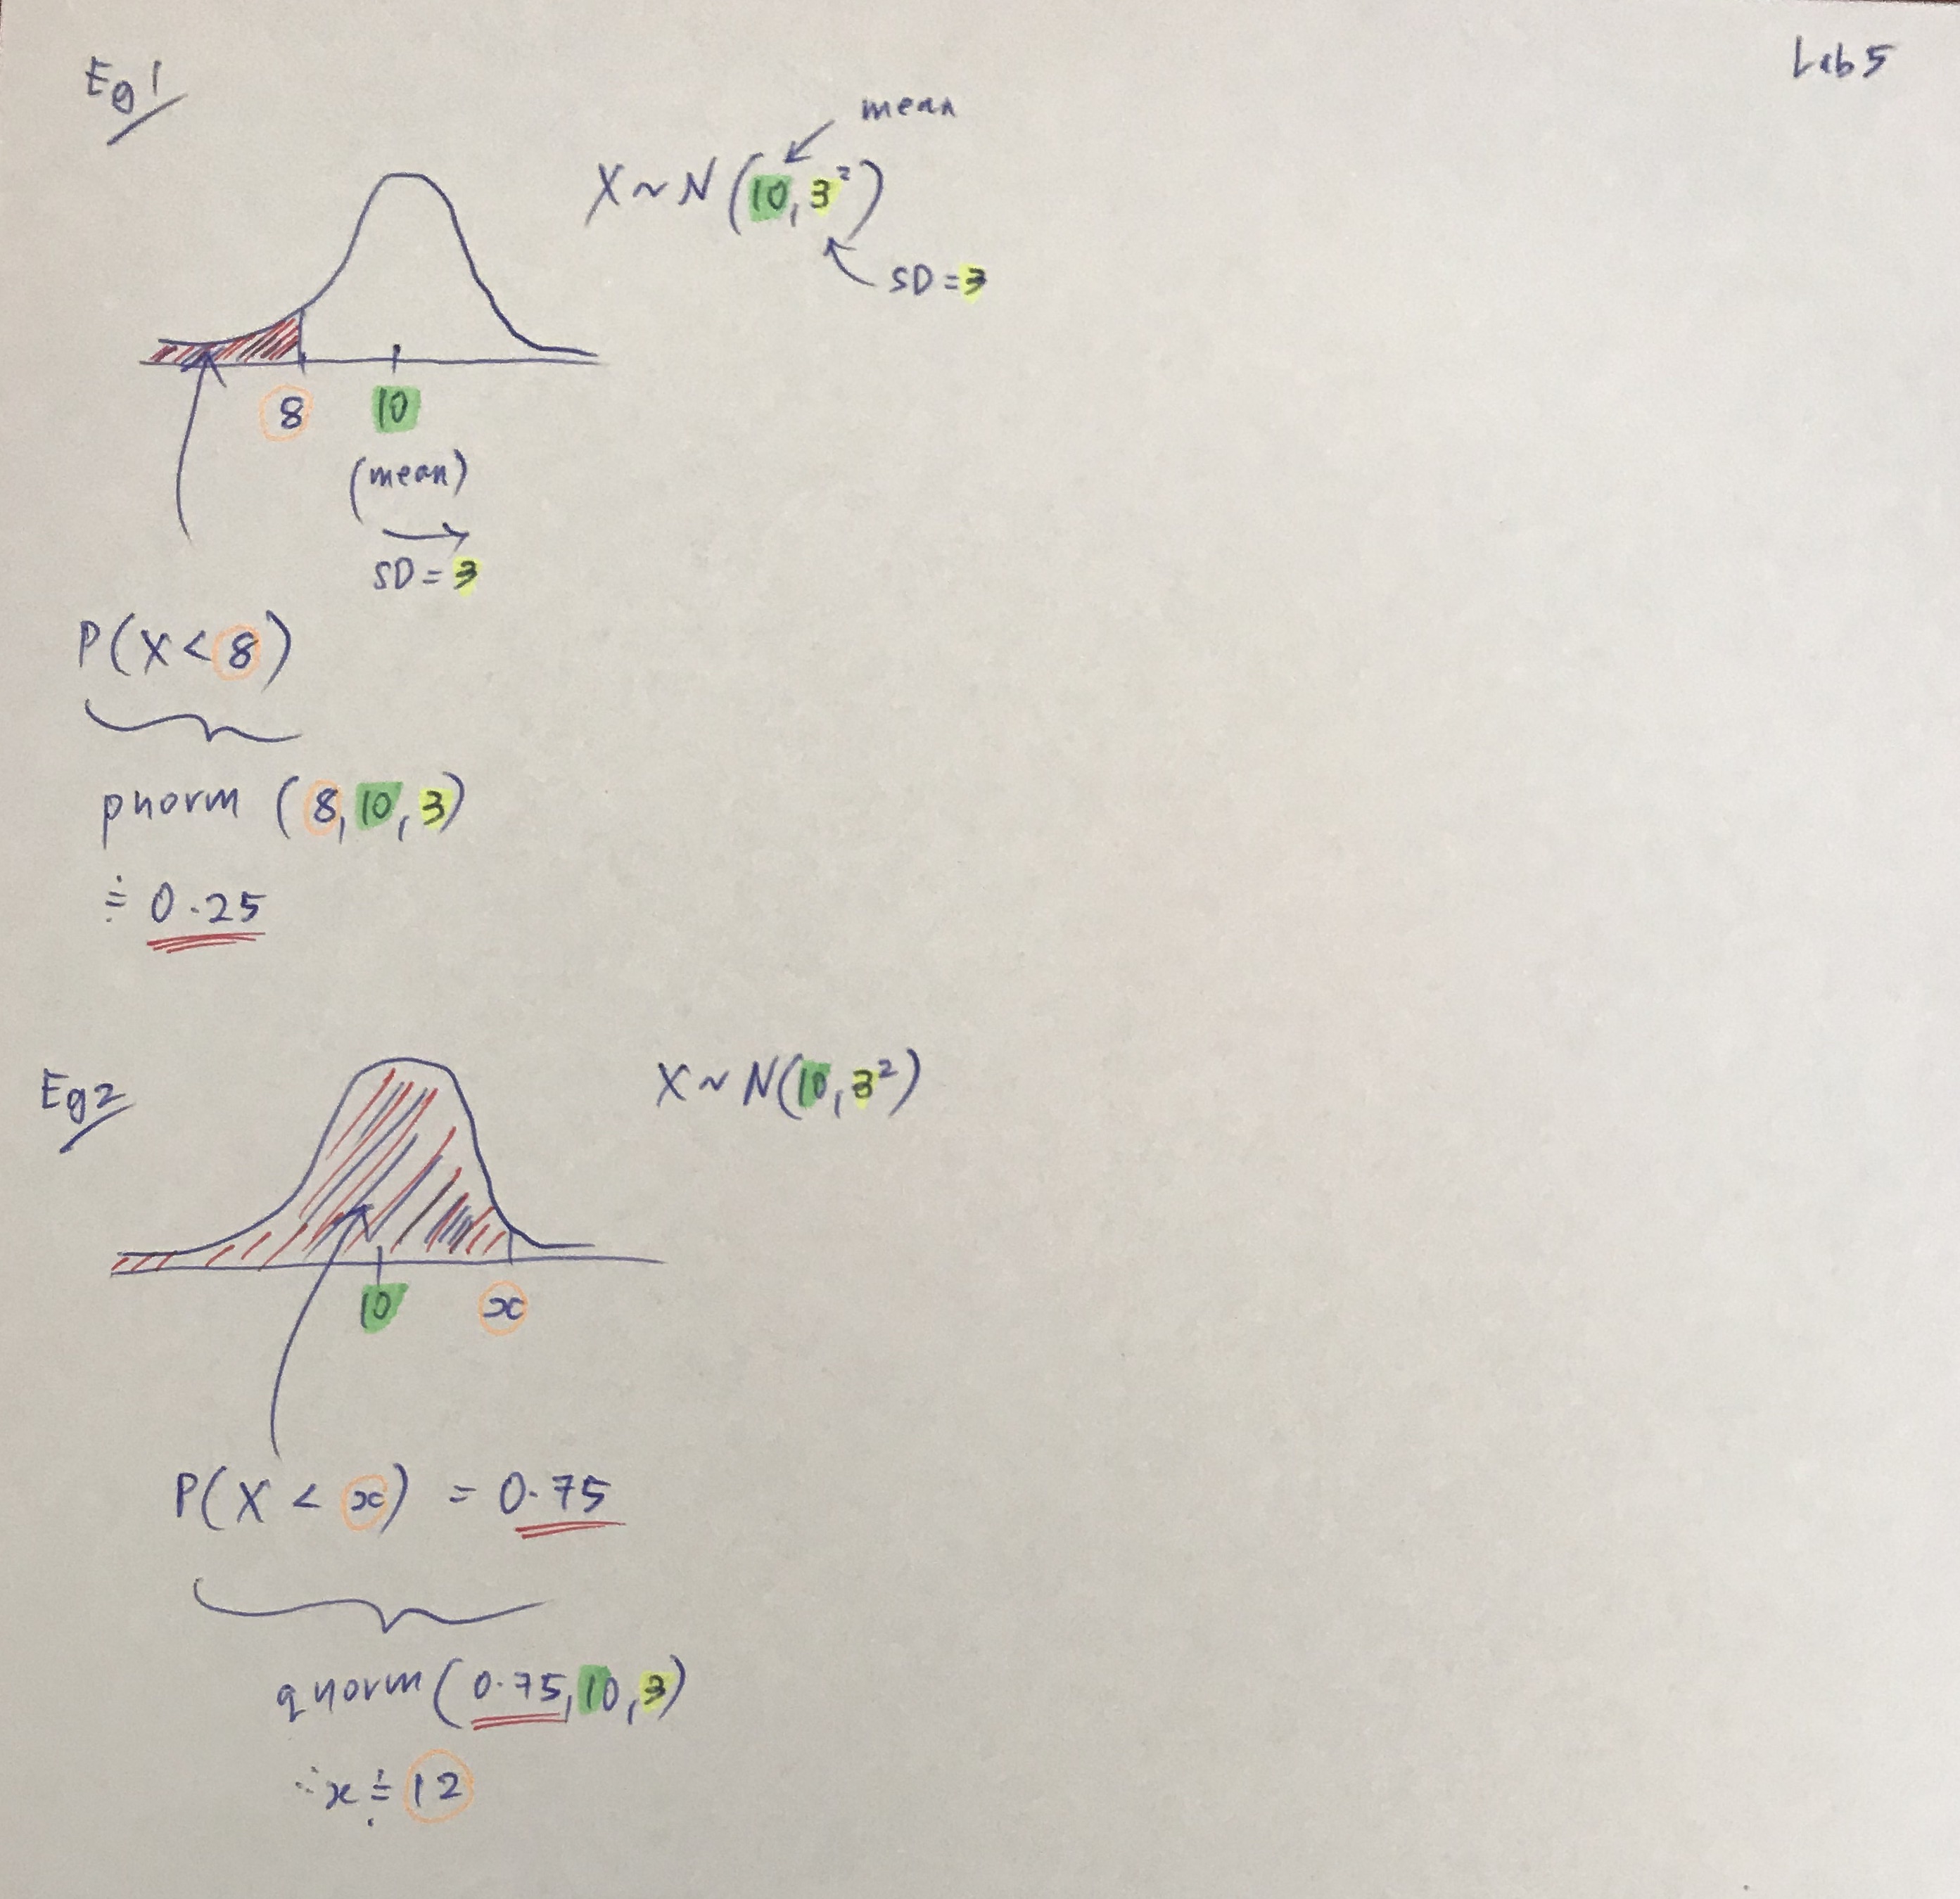 Lab 5
Eg 1
mean
X ~ N (10, 3²)
SD = 3
8 10
(mean)
SD = 3
P(X < 8)
pnorm (8, 10, 3)
≑ 0.25
Eg 2
X ~ N(10, 3²)
10 x
P(X < x) = 0.75
qnorm (0.75, 10, 3)
∴ x ≑ 12